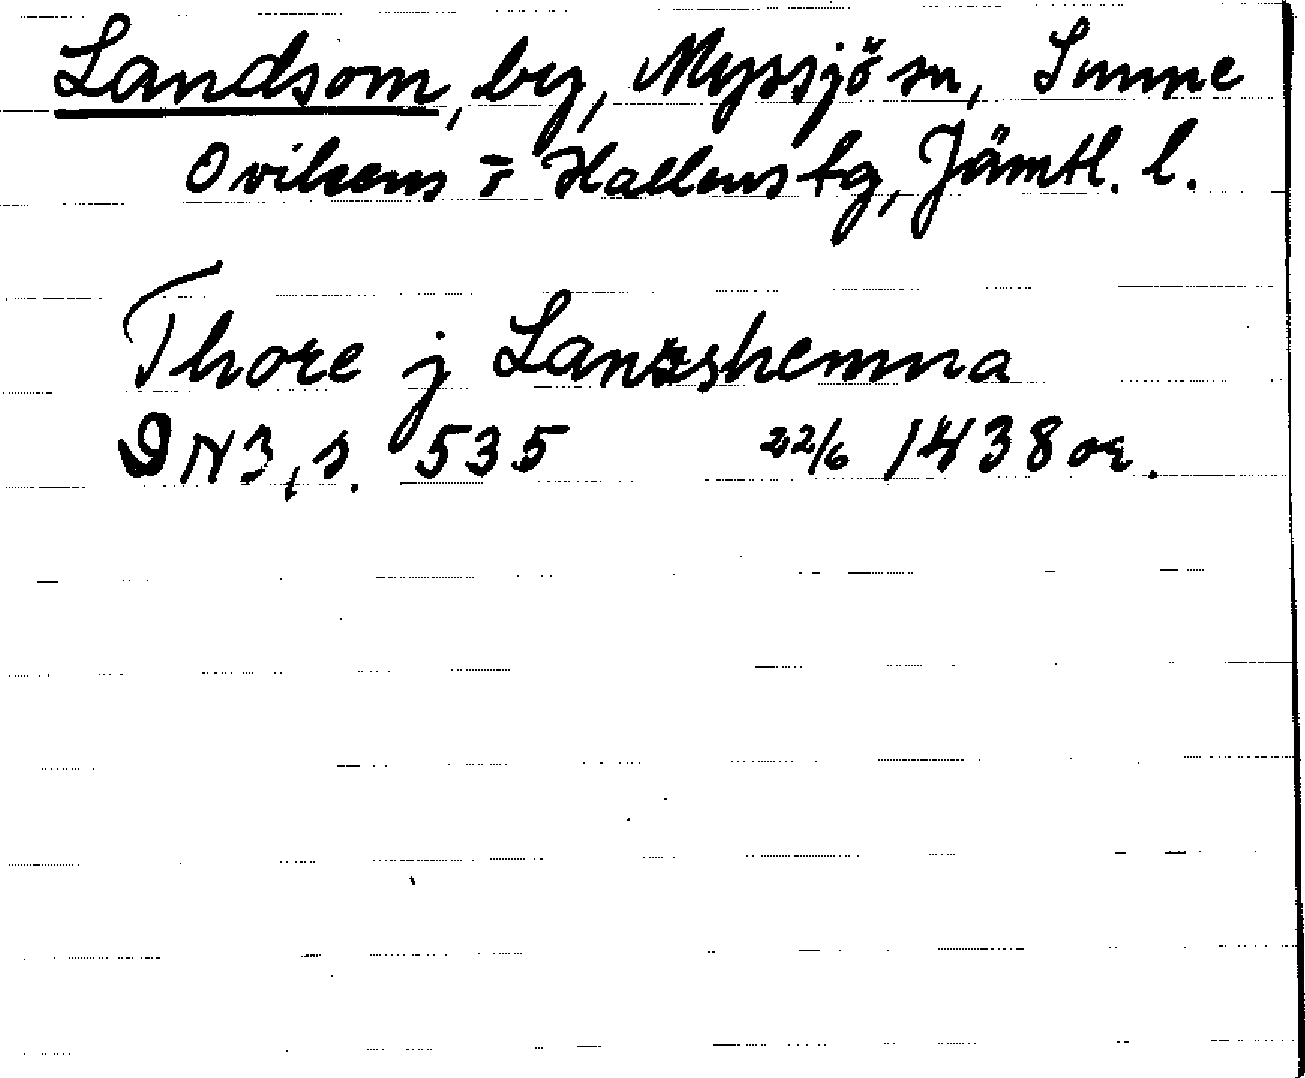 Landsom, by, Myssjö sn, Sunne
Ovikens o Hallens tg, Jämtl. l.
Thore j Lanzshemna
DN3, s. 535 22/6 1438 or.